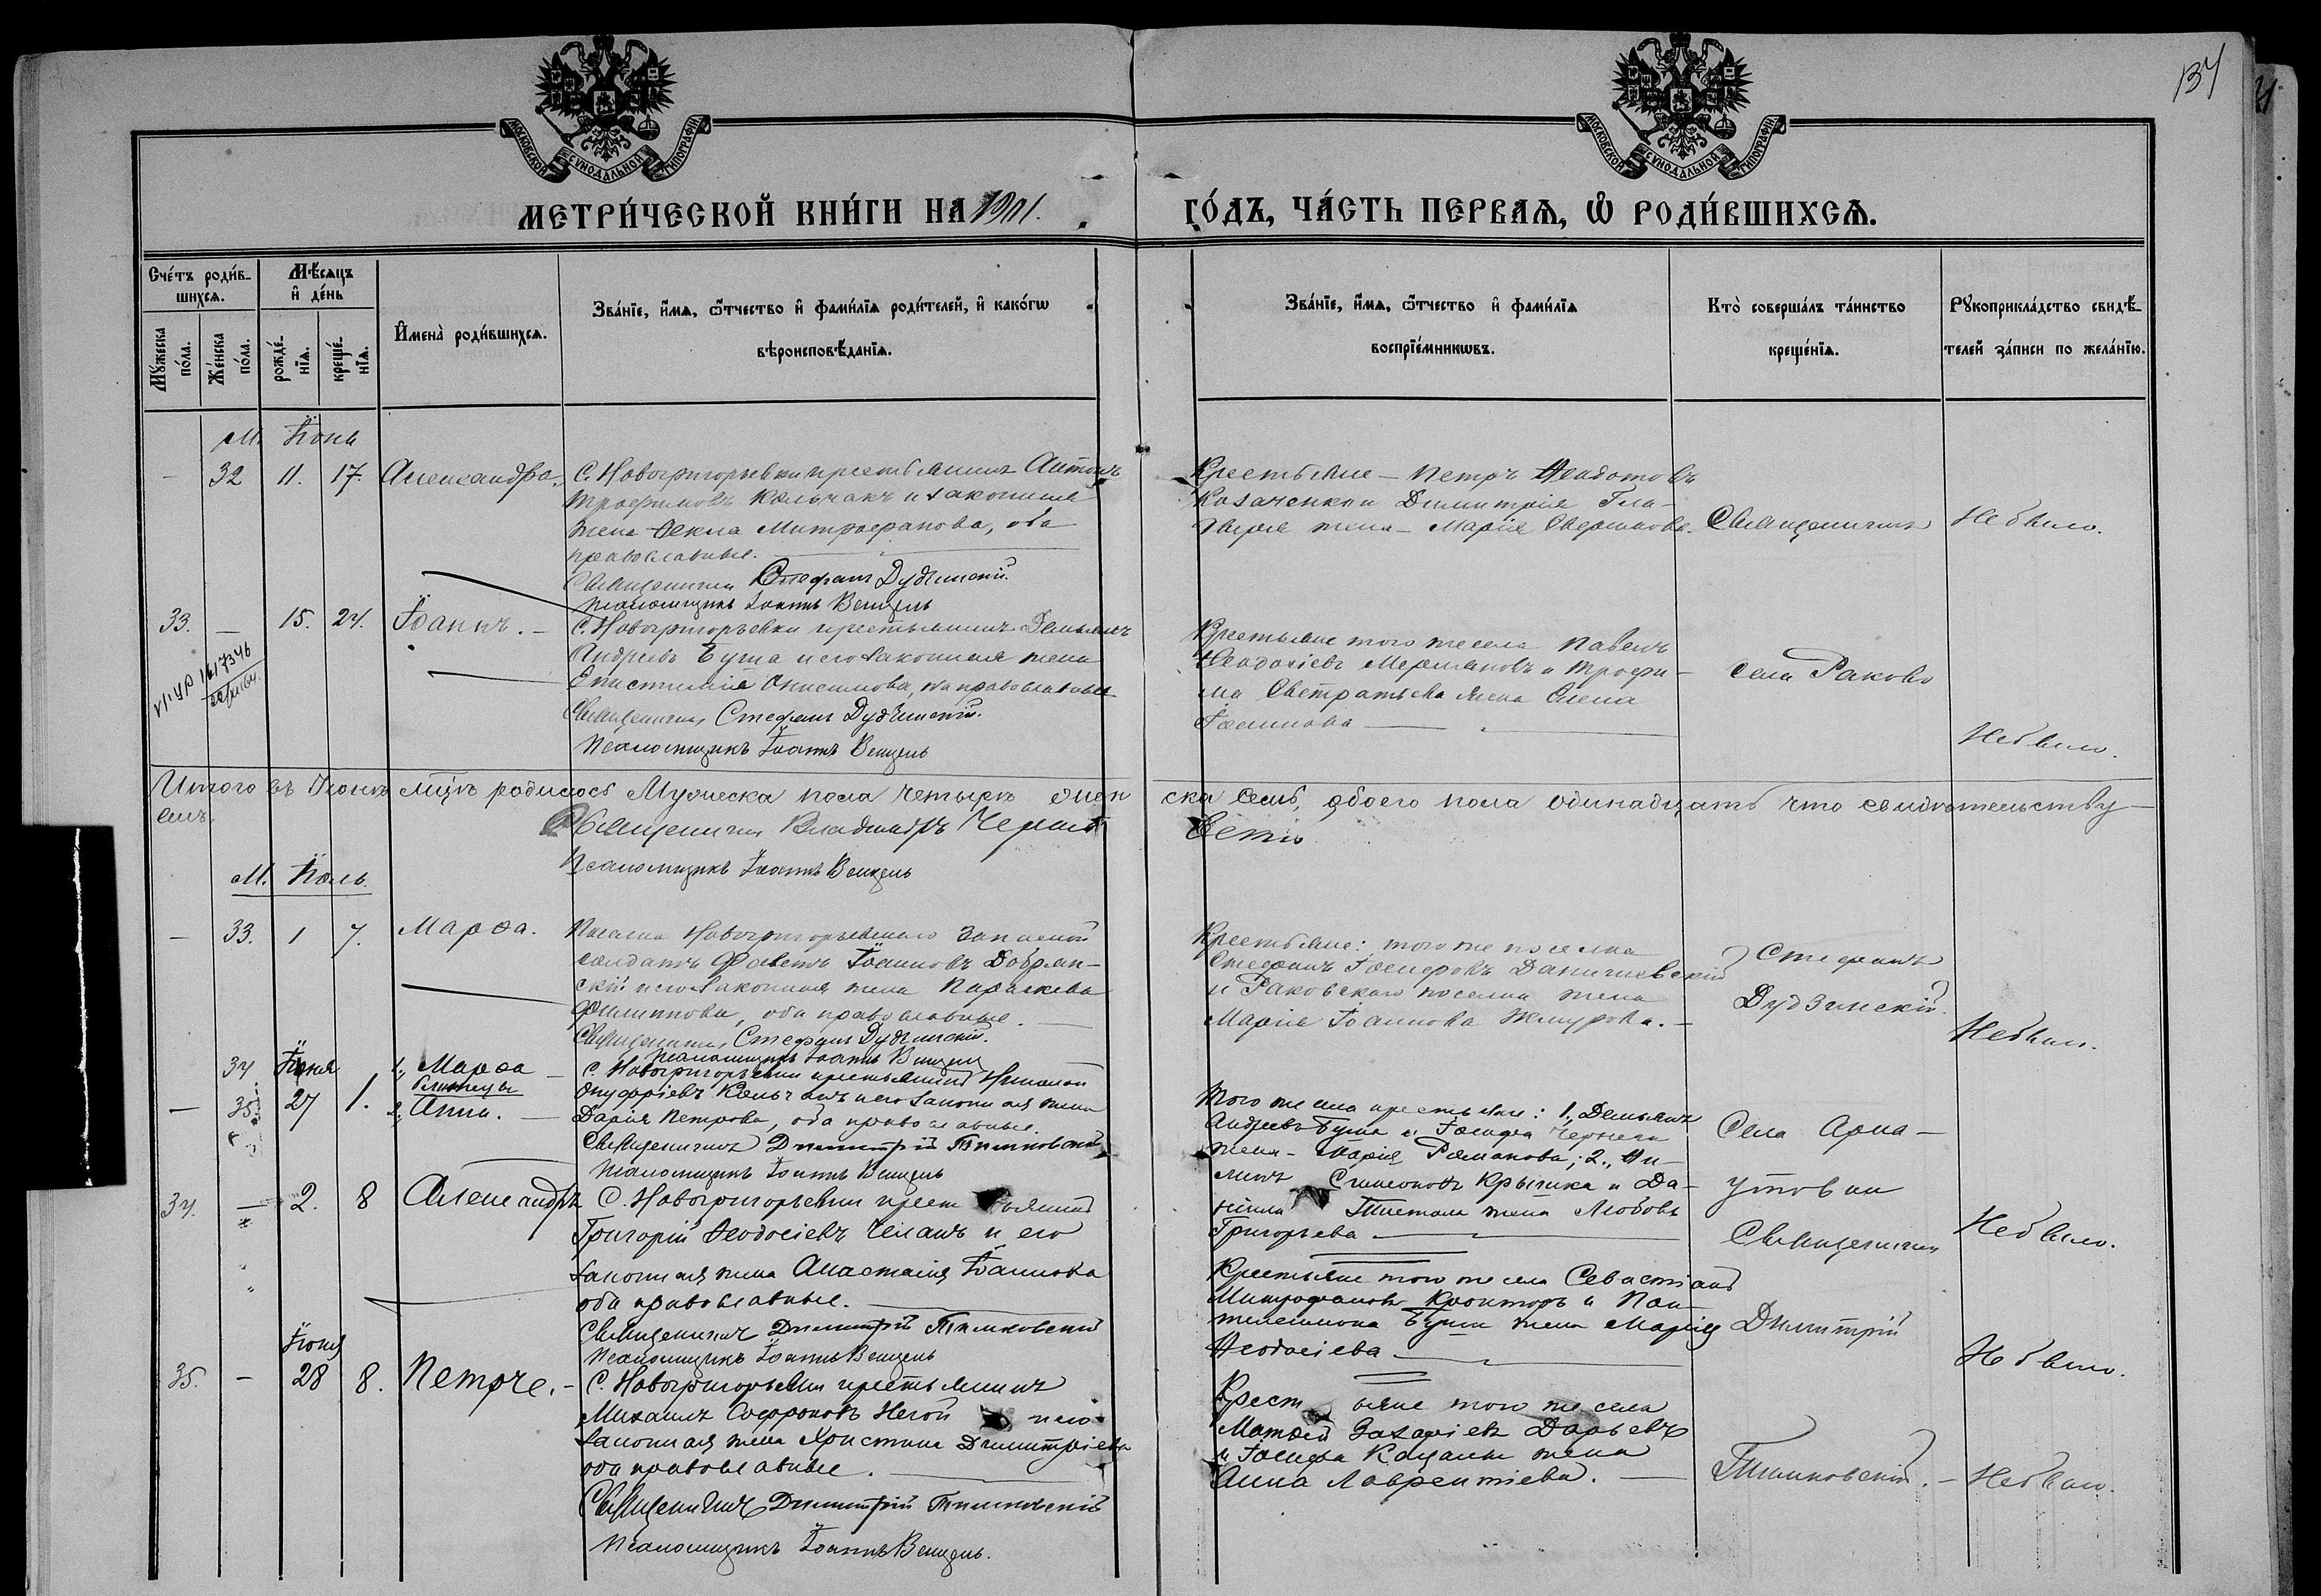 134
МОСКОВСКОЙ СѴНОДАЛЬНОЙ ТИПОГРАФІИ
МОСКОВСКОЙ СѴНОДАЛЬНОЙ ТИПОГРАФІИ
МЕТРИ́ЧЕСКОЙ КНИ́ГИ НА 1901. ГО́ДЪ, ЧА́СТЬ ПЕРВАѦ, Ѡ҆ РОДИ́ВШИХСѦ.
Счéтъ роди́вшихсѧ.
Мꙋ́жеска по́ла.
Же́нска по́ла.
Мѣ́сѧцъ и҆ де́нь
рожде́нїѧ.
креще́нїѧ.
И҆мена̀ роди́вшихсѧ.
Зва́нїе, и҆́мѧ, ѻ҆́тчество и҆ фами́лїѧ роди́телей, и҆ како́гѡ
вѣроисповѣ́данїѧ.
Зва́нїе, и҆́мѧ, ѻ҆́тчество и҆ фами́лїѧ
воспрїе́мникѡвъ.
Кто̀ совершáлъ тáинство
креще́нїѧ.
Рꙋкоприклáдство свидѣ́-
телей зáписи по желáнїю.
М. Іюнь
— 32 11. 17. Александра.
С. Новогригорьевки крестьянинъ Антонъ
Трофимовъ Колычакъ и законная
жена Ѳекла Митрофанова, оба
православные.
Священникъ Стефанъ Дудзинскій.
Псаломщикъ Іоаннъ Венцель
Крестьяне — Петръ Ѳеодотовъ
Козаченко и Димитрія
жена — Марія
Священникъ
Небыло.
33. — 15. 24. Іоаннъ. —
С. Новогригорьевки крестьянинъ Демьянъ
Андреевъ Буша и его законная жена
Епистимія Онисимова, оба православные
Священникъ Стефанъ Дудзинскій.
Псаломщикъ Іоаннъ Венцель
Крестьяне того же села Павелъ
Ѳеодосіевъ и Трофи-
ма жена Елена
Іоаннова
села Раково
Небыло.
Итого въ Іюнѣ мцѣ родилось Мужеска пола четыре женска семь, обоего пола одинадцать что свидѣтельству-
емъ.
Священникъ Владиміръ
Псаломщикъ Іоаннъ Венцель
М. Іюль.
— 33. 1 7. Марѳа.
Поселка Новогригорьевскаго запасной
солдатъ Іоанновъ Добрян-
скій и его законная жена Параскева
Филиппова, оба православные.
Священникъ Стефанъ Дудзинскій.
Псаломщикъ Іоаннъ Венцель
Крестьяне: того же поселка
Стефанъ Іосифовъ Даничевскій
и Раковскаго поселка жена
Марія Іоаннова
Стефанъ
Дудзинскій.
Небыло.
34 Іюня 1., Марѳа
близнецы
— 35 27 1. 2., Анна. —
С. Новогригорьевки крестьянинъ Николай
Онуфріевъ Колычакъ и его законная жена
Дарія Петрова, оба православные.
Священникъ Димитрій Тимковскій
Псаломщикъ Іоаннъ Венцель
Того же села крестьяне: 1., Демьянъ
Андреевъ Буша и Іосифа
жена — Марія Романова; 2.,
Симеоновъ Крычка и Да-
ніила жена Любовь
Григорьева
Села Арна-
утовки
Священникъ
Небыло.
34. — 2. 8 Александръ
С. Новогригорьевки крестьянинъ
Григорій Ѳеодосіевъ и его
законная жена Анастасія Іоаннова
оба православные.
Священникъ Димитрій Тимковскій
Псаломщикъ Іоаннъ Венцель
Крестьяне того же села Севастіанъ
Митрофановъ и Пан-
телеимона Буши жена Марія
Ѳеодосіева
Димитрій
Небыло.
Іюня
35. — 28 8. Петръ. —
С. Новогригорьевки крестьянинъ
Михаилъ Софроновъ и его
законная жена Христина Димитріева
оба православные.
Священникъ Димитрій Тимковскій
Псаломщикъ Іоаннъ Венцель.
Крестьяне того же села
Матѳей Захаріевъ
и Іосифа жена
Анна Лаврентіева. —
Тимковскій. —
Небыло.